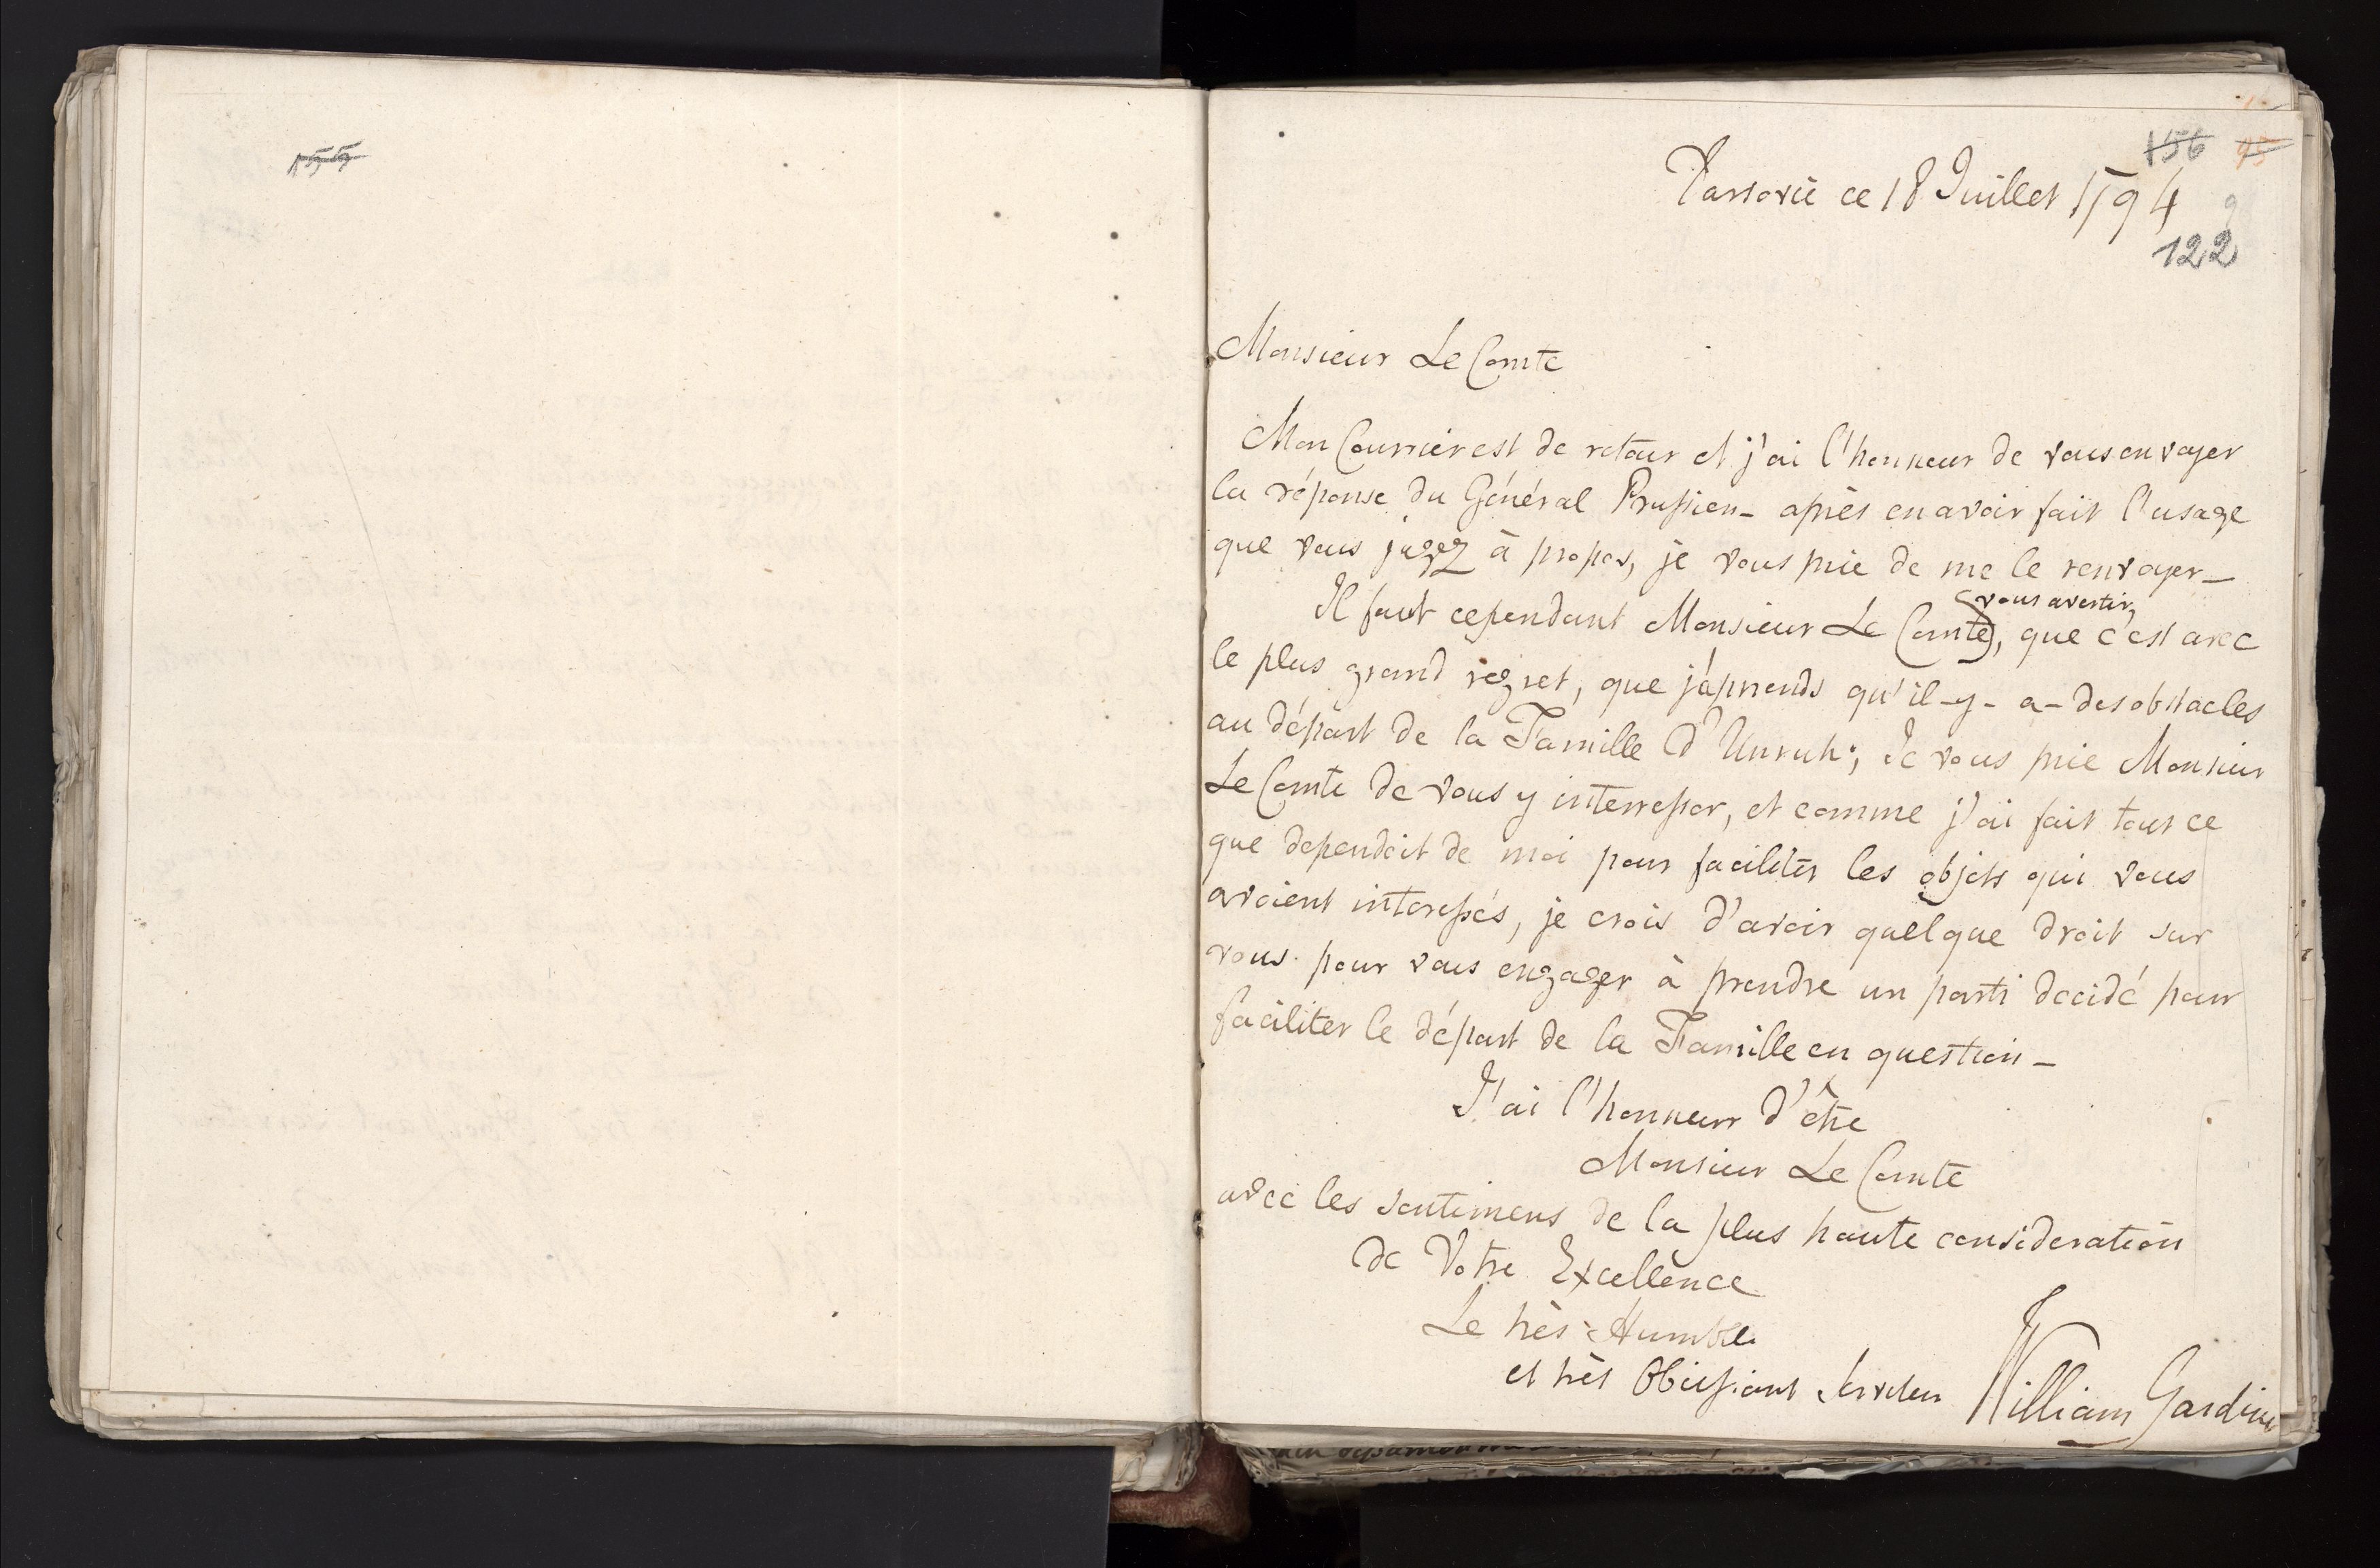 155
156 95
Varsovie ce 18 Juillet 1794
122
Monsieur Le Comte
Mon Courrier est de retour et j'ai l'honneur de vous envoyer
la réponse du Général Prussien_ après en avoir fait l'usage
que vous jugez à propos, je vous prie de me le renvoyer_
vous avertir,
Il faut cependant Monsieur Le Comte, que c'est avec
le plus grand regret, que j'aprends qu'il-y-a-des obstacles
au départ de la Famille d'Unruh; Je vous prie Monsieur
Le Comte de vous y interresser, et comme j'ai fait tout ce
que dependoit de moi pour faciliter les objets qui vous
avoient interessés, je crois d'avoir quelque droit sur
vous pour vous engager à prendre un parti decidé pour
faciliter le départ de la Famille en question_
J'ai l'honneur d'être
Monsieur Le Comte
avec les sentimens de la plus haute consideration
de Votre Excellence
Le très Humble
et très Obeissant Serviteur William Gardiner